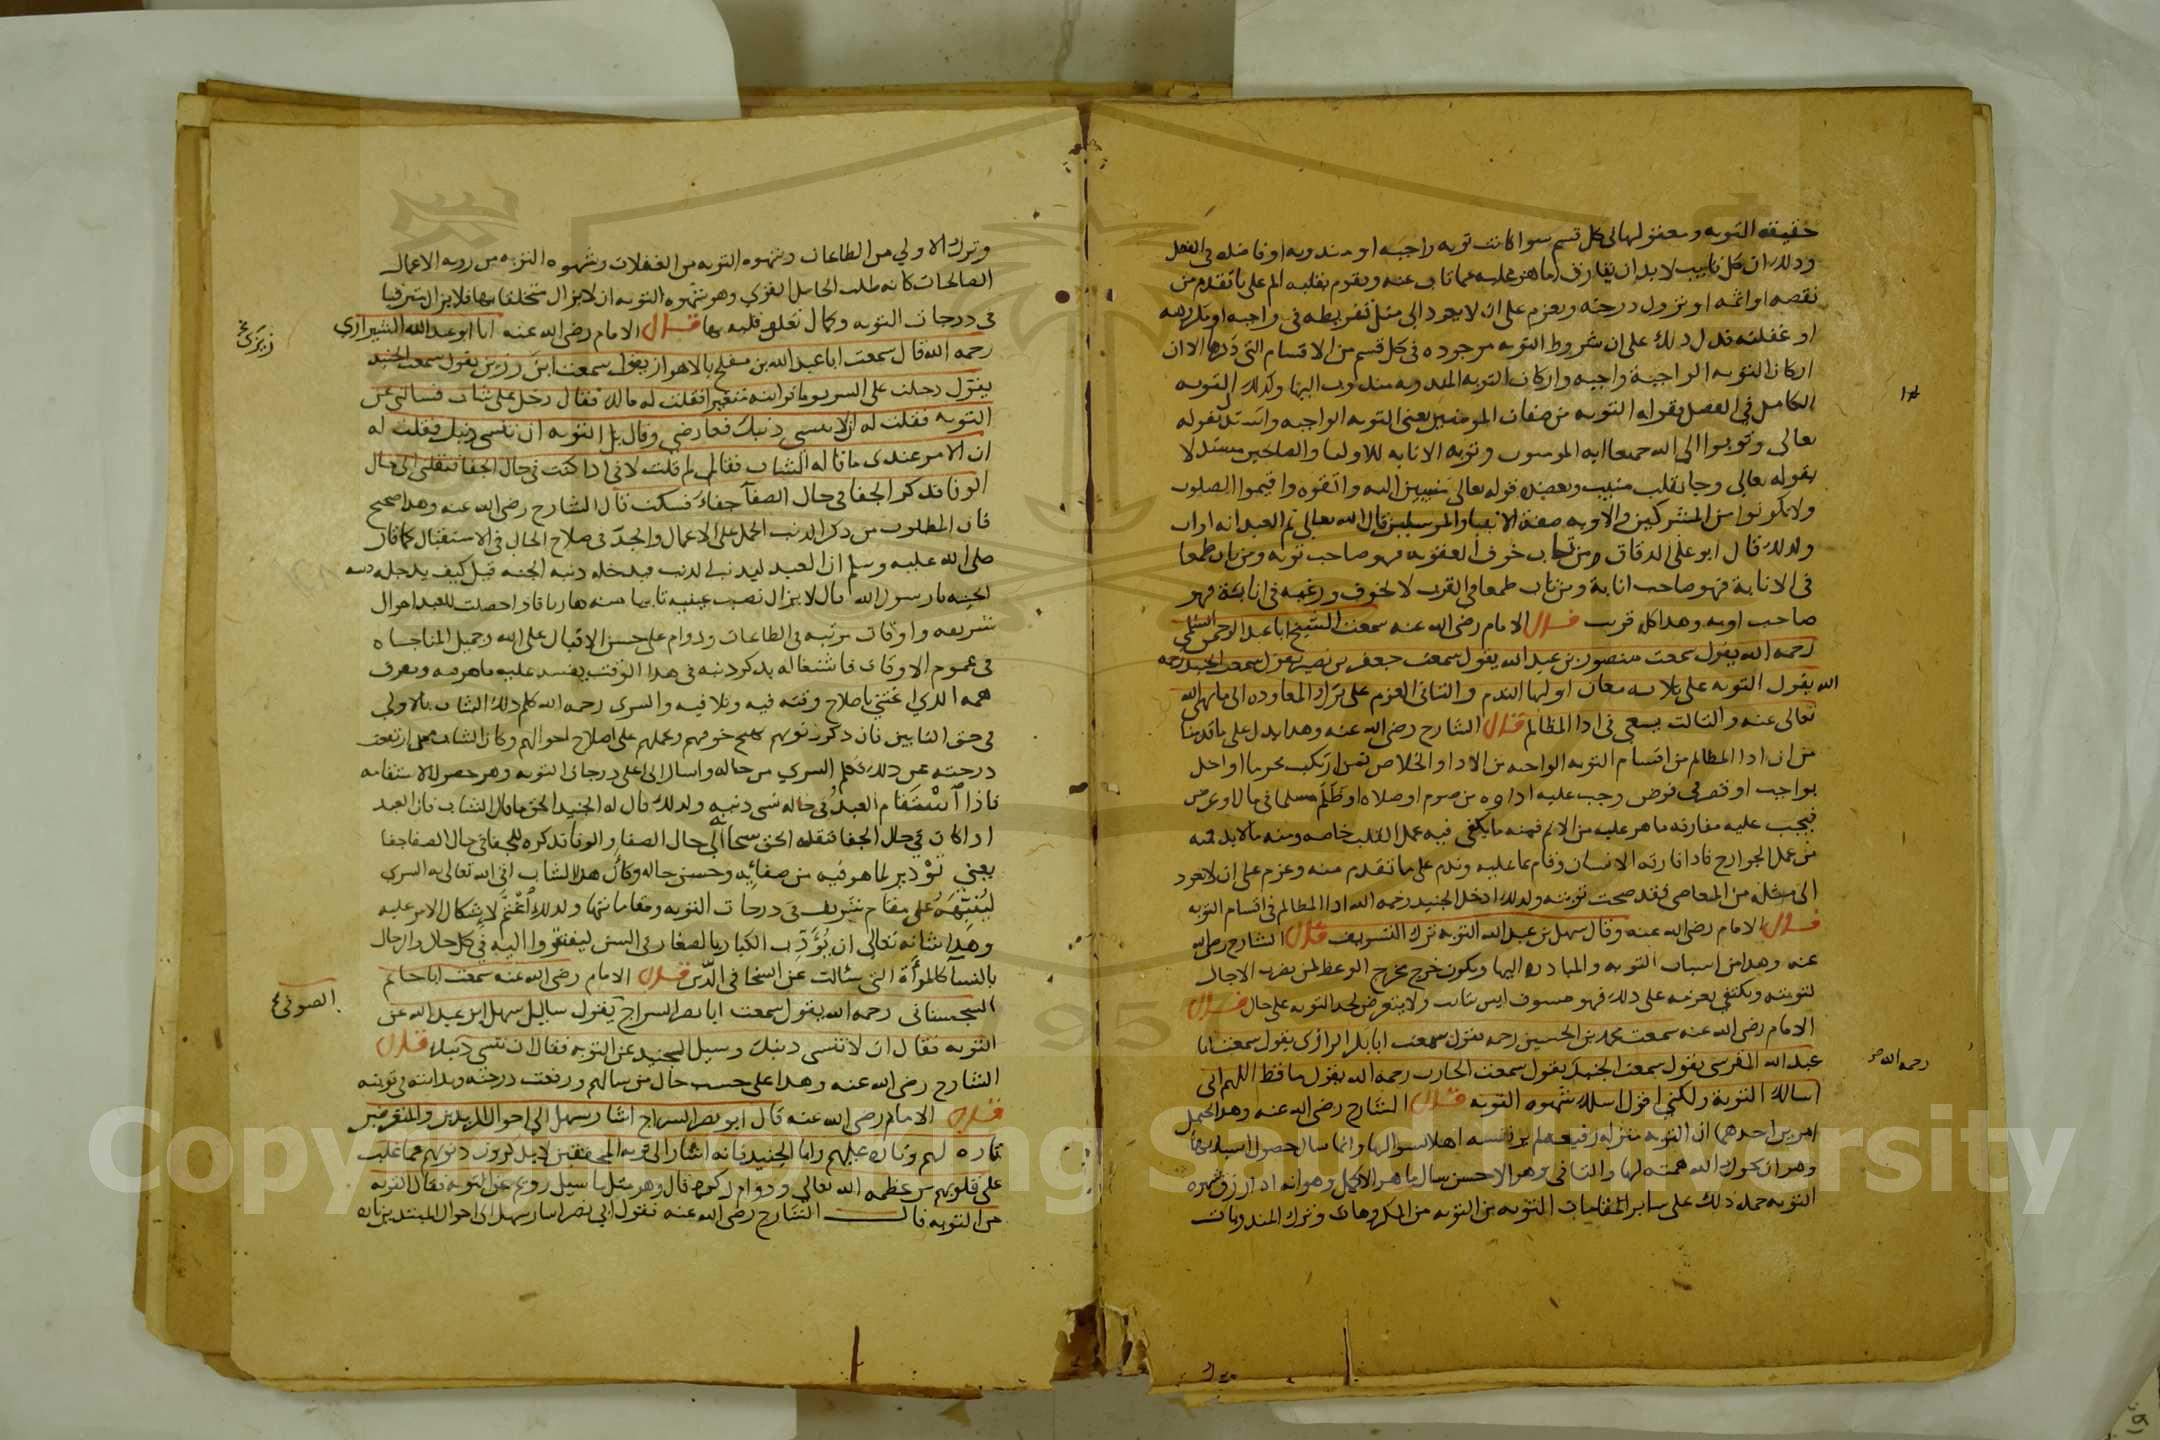 حقيقة التوبه ومعقولها في كل قسم سوا كانت توبه واجبه او مندوبه او فاضله في الفضل
وذلك ان كل تايب لا بد ان يفارق ما هو عليه مما تاب عنه ويقوم بقلبه الم على ما تقدم من
نقصه او اثمه او نزول درجته ويعزم على ان لا يعود الى مثل تفريطه في واجبه او
او غفلته فدل ذلك على ان شروط التوبه موجوده في كل قسم من الاقسام التي ذكرها الا ان
اركان التوبه الواجبة واجبه واركان التوبه المندوبه مندوب اليها وكذلك التوبه
الكامل في الفضل بقوله التوبه من صفات المومنين يعني التوبه الواجبه واستدل بقوله
تعالى وتوبوا الى الله جميعا ايه المومنون وتوبه الانابه للاوليا والصالحين مستدلا
بقوله تعالى وجا بقلب منيب وبعضده قوله تعالى منيبين اليه واتقوه واقيموا الصلوه
ولا تكونوا من المشركين والاوبه صفة الانبيا والمرسلين قال الله تعالى نعم العبد انه اواب
ولذلك قال ابو علي الدقاق من تاب خوف العقوبه فهو صاحب توبه ومن تاب طمعا
في الانابة فهو صاحب انابة ومن تاب طمعا في القرب لا لخوف ورغبه في انابته فهو
صاحب اوبه وهذا كله قريب قال الامام رضي الله عنه سمعت الشيخ ابا عبد الرحمن السلمي
رحمه الله يقول سمعت منصور بن عبد الله يقول سمعت جعفر بن نصير يقول سمعت الجنيد رحمه
الله يقول التوبه على ثلاثه معان اولها الندم والثاني العزم على ترك المعاوده الى ما نهى الله
تعالى عنه والثالث يسعى في ادا المظالم قال الشارح رضي الله عنه وهذا يدل على ما قدمنا
من ان ادا المظالم من اقسام التوبه الواجبه من الادا والخلاص فمن ارتكب محرما او اخل
بواجب او قصر في فرض وجب عليه اداوه من صوم او صلاه او ظلم مسلما في مال او عرض
فيجب عليه مفارقة ما هو عليه من الاثم فمنه ما يكفي فيه عمل القلب خاصه ومنه ما لا بد فيه
من عمل الجوارح فاذا فارقه الانسان وقام بما عليه وندم على ما تقدم منه وعزم على ان لا يعود
الى مثله من المعاصي فقد صحت توبته ولذلك ادخل الجنيد رحمه الله ادا المظالم في اقسام التوبه
قال الامام رضي الله عنه وقال سهل بن عبد الله التوبه ترك التسويف قال الشارح رضي الله
عنه وهذا من اسباب التوبه والمبادره اليها ويكون خرج مخرج الوعظ لمن يضرب الاجال
لتوبته ويكتفي بعزمه على ذلك فهو مسوف ليس بتايب ولا يتعرض لحد التوبه على حال قال
الامام رضي الله عنه سمعت محمد بن الحسين رحمه يقول سمعت ابا بكر الرازي يقول سمعت ابا
عبد الله القرشي يقول سمعت الجنيد يقول سمعت الحارث رحمه الله يقول ما قط اللهم اني
رحمه الله
اسالك التوبة ولكني اقول اسالك شهوه التوبه قال الشارح رضي الله عنه وهذا يحتمل
امرين احدهما ان التوبه منزله رفيعه لم ير نفسه اهلا لسوالها وانما سال حصول اسبابها
وهو ان يحرك الله همته لها والثاني وهو الاحسن سال ما هو الاكمل وهو انه اذا رزق شهوه
التوبه حمله ذلك على ساير المقامات التوبه من التوبه من المكروهات وترك المندوبات
وترك الاولي من الطاعات وشهوه التوبه من الغفلات وشهوه التوبه من رويه الاعمال
الصالحات كانه طلب الحامل القوي وهو شهوه التوبه ان لا يزال متخلقا بها فلا يزال مترقيا
في درجات التوبه وكمال تعلق قلبه بها قال الامام رضي الله عنه انا ابو عبد الله الشيرازي
رحمه الله قال سمعت ابا عبد الله بن مفلح بالاهواز يقول سمعت ابن زيزي يقول سمعت الجنيد
زيزي
يقول دخلت على السري يوما فرايته متغيرا فقلت له مالك فقال دخل علي شاب فسالني عن
التوبه فقلت له ان لا تنسى ذنبك فعارضني وقال بل التوبه ان تنسى ذنبك فقلت له
ان الامر عندي ما قاله الشاب فقال لم قلت لاني اذا كنت في حال الجفا فنقلني الى حال
الوفا فذكر الجفا في حال الصفا جفاء فسكت قال الشارح رضي الله عنه وهذا صحيح
فان المطلوب من ذكر الذنب الحمل على الاعمال والجد في صلاح الحال في الاستقبال كما قال
صلى الله عليه وسلم ان العبد ليذنب الذنب فيدخله ذنبه الجنه قيل كيف يدخله ذنبه
الجنه يا رسول الله قال لا يزال نصب عينيه تايبا منه هاربا فاذا حصلت للعبد احوال
شريفه واوقات مرتبه في الطاعات ودوام على حسن الاقبال على الله وجميل المناجاه
في عموم الاوقات فاشتغاله بذكر ذنبه في هذا الوقت يفسد عليه ما هو فيه ويفرق
همه الذي اعتني باصلاح وقته فيه وتلافيه والسري رحمه الله كلم ذلك الشاب بالاولي
في حق التايبين فان ذكر ذنوبهم يهيج خوفهم ويحملهم على اصلاح احوالهم وكان الشاب ممن ارتفعت
درجته عن ذلك فكلم السري من حاله واشار الى اعلى درجات التوبه وهو حصول الاستقامه
فاذا استقام العبد في حاله نسي ذنبه ولذلك قال له الجنيد الحق ما قال الشاب فان العبد
اذا كان في حال الجفا فنقله الحق سبحانه الى حال الصفا والوفا فذكره للجفا في حال الصفا جفا
يعني يودي لما هو فيه من صفائه وحسن حاله وكان هذا الشاب اتى الله تعالى به السري
لينبهه على مقام شريف في درجات التوبه ومقاماتها ولذلك اغتم لاشكال الامر عليه
وهذا شانه تعالى ان يؤدب الكبار بالصغار في السن ليفتقروا اليه في كل حال والرجال
بالنسا كالمرأة التي سئلت عن السخا في الدين قال الامام رضي الله عنه سمعت ابا حاتم
السجستاني رحمه الله يقول سمعت ابا نصر السراج يقول سايل سهل ابن عبد الله عن
الصوفي
التوبه فقال ان لا تنسى ذنبك وسيل الجنيد عن التوبه فقال ان تنسى ذنبك قال
الشارح رضي الله عنه وهذا على حسب حال من سالهم ورفعت درجته وبدايته في توبته
قال الامام رضي الله عنه قال ابو نصر السراج اشار سهل الى احوال المريدين والمتعرضين
تاره لهم وتاره عليهم واما الجنيد فانه اشار الى توبه المحققين لا يذكرون ذنوبهم مما غلب
على قلوبهم من عظمه الله تعالى ودوام ذكره قال وهو مثل ما سيل رويم عن التوبه فقال التوبه
من التوبه قال الشارح رضي الله عنه فقول ابي نصر اشار سهل الى احوال المبتدين تاره